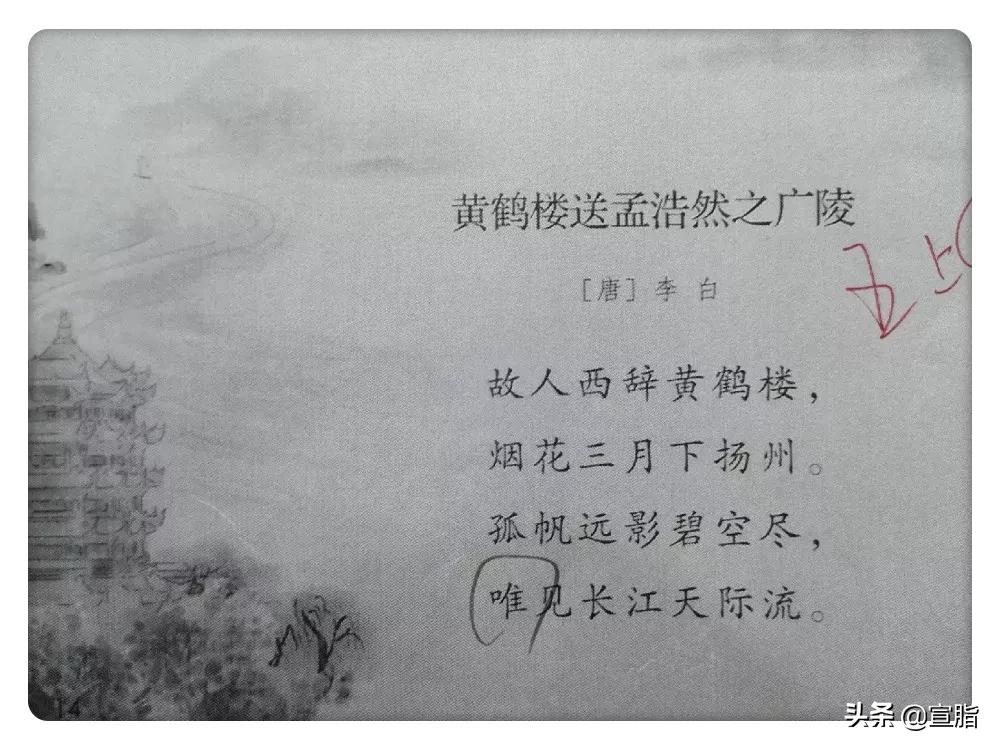 黄鹤楼送孟浩然之广陵
［唐］李 白
五上
故人西辞黄鹤楼，
烟花三月下扬州。
孤帆远影碧空尽，
唯见长江天际流。
14
头条 @宣脂